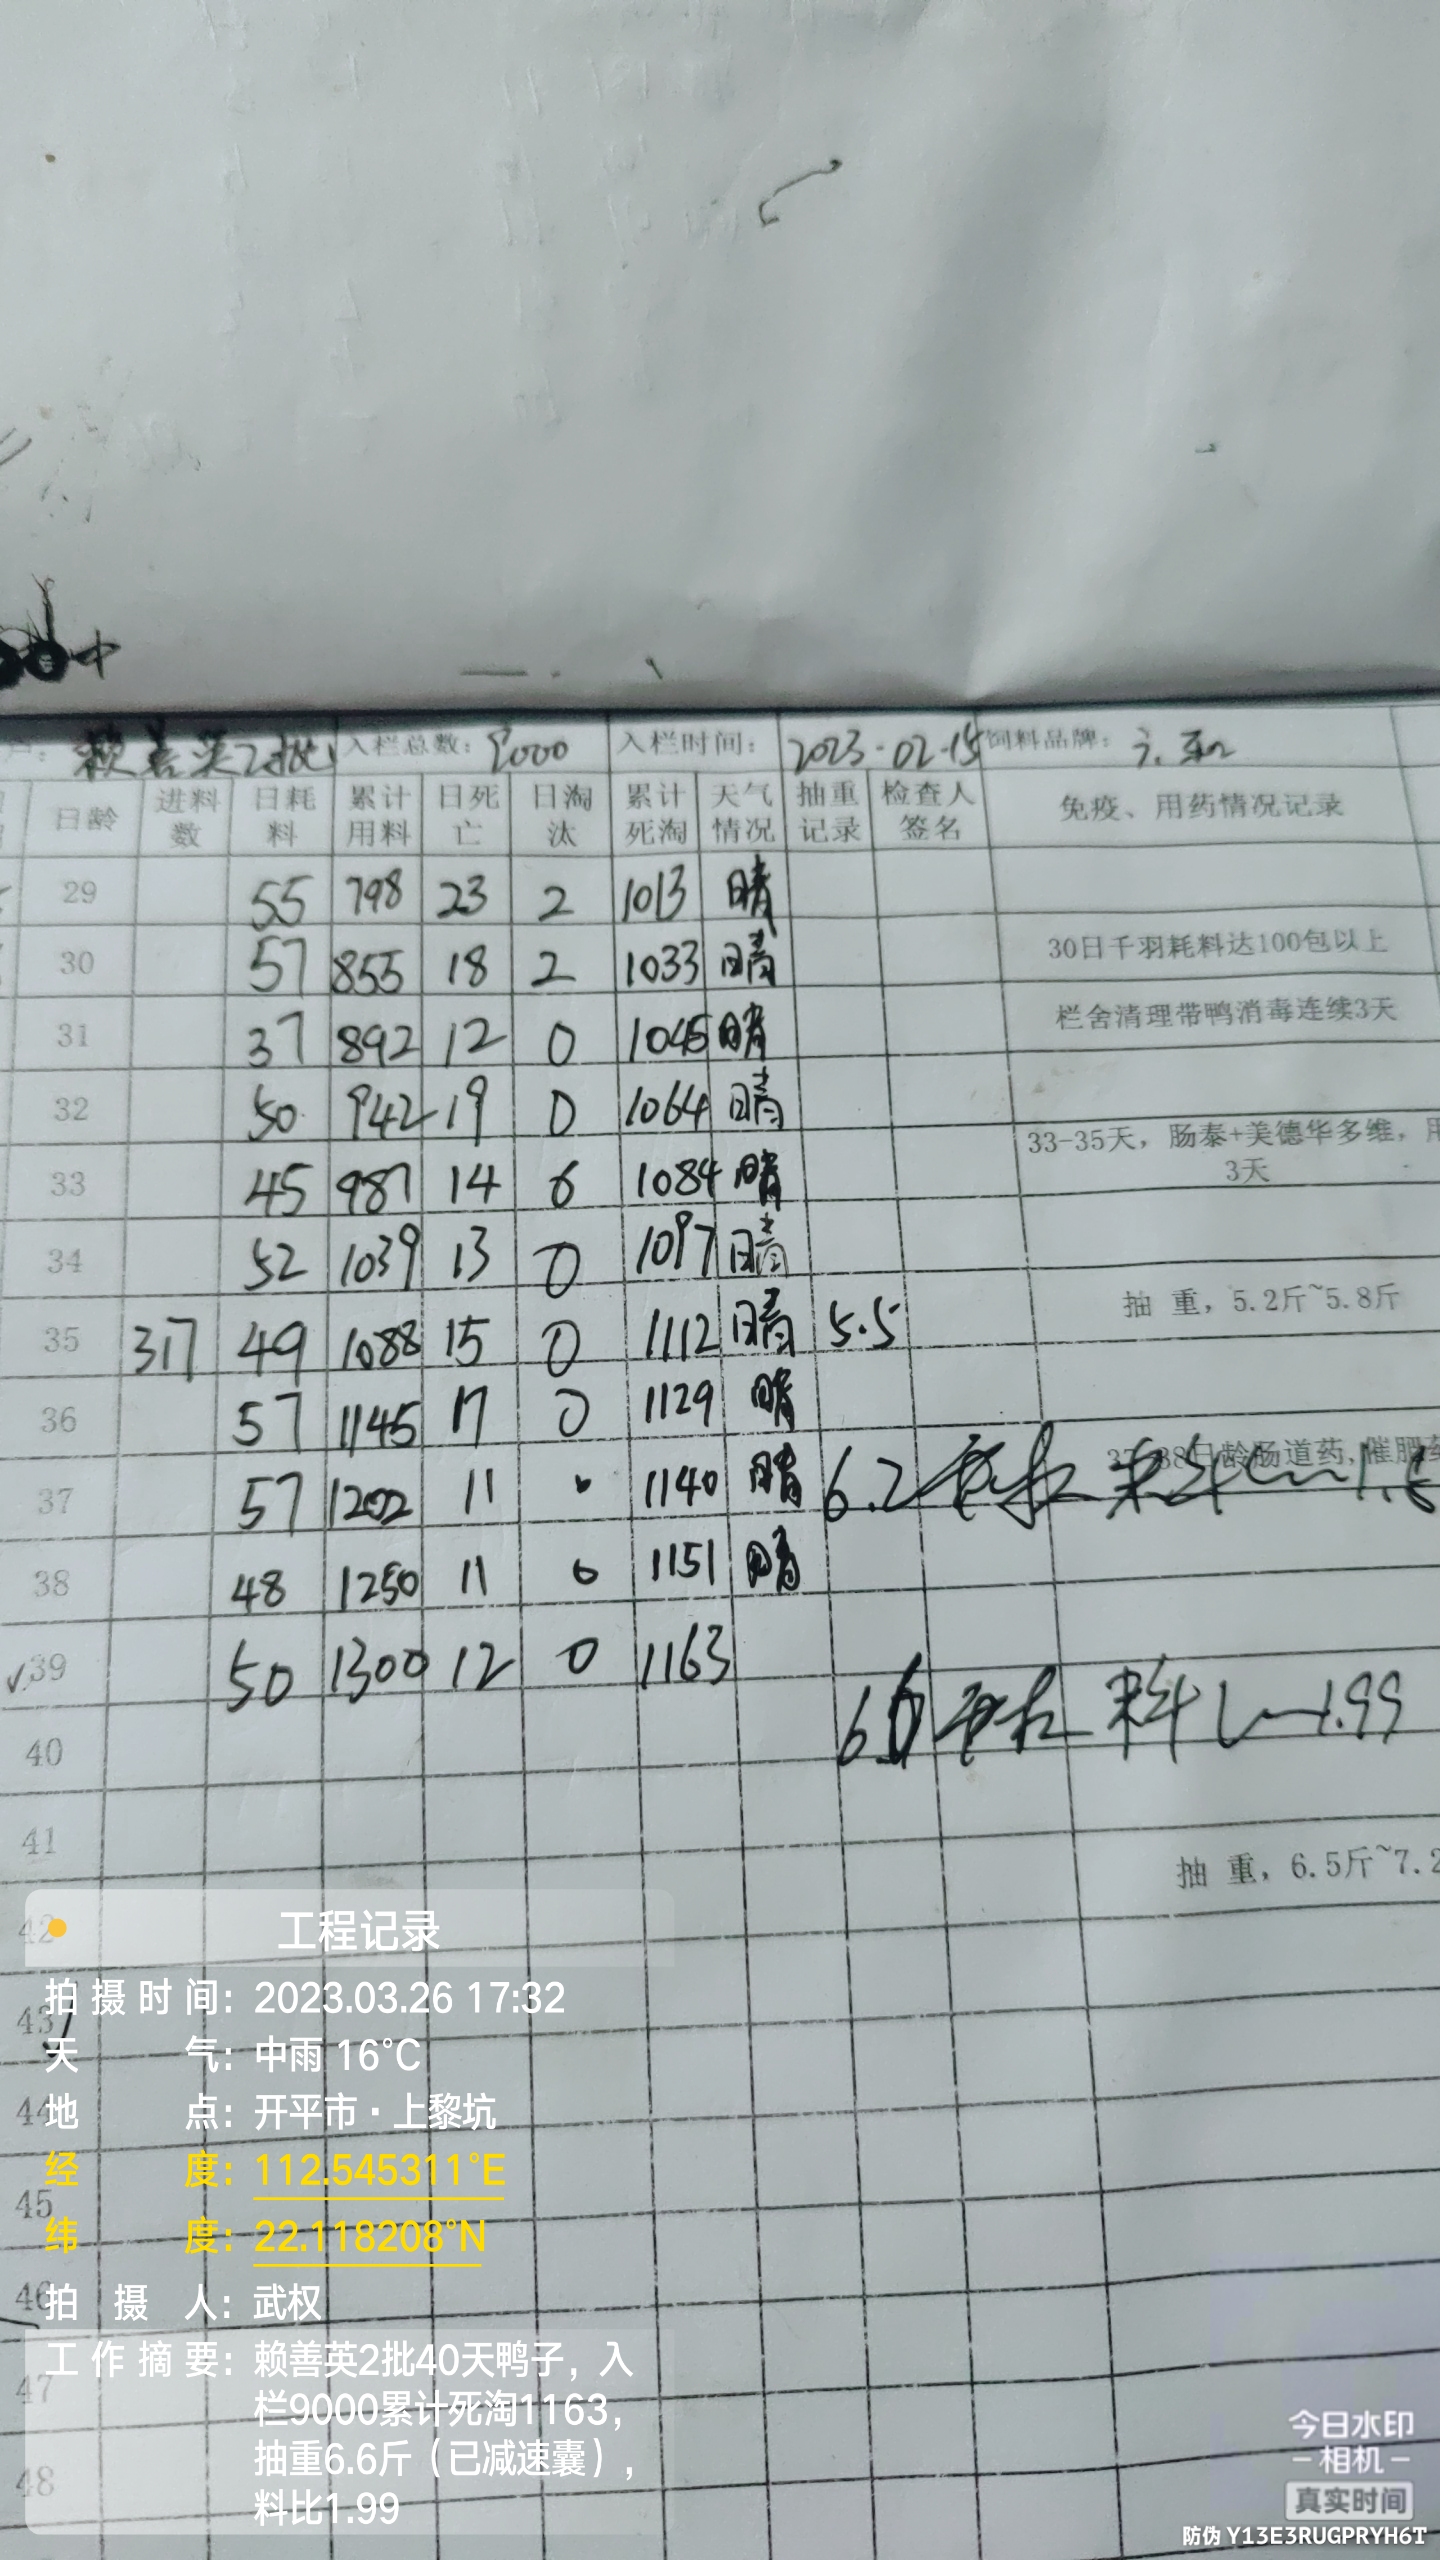 赖善英2批 入栏总数：9000 入栏时间：2023-02-15 饲料品牌：
日龄 进料数 日耗料 累计用料 日死亡 日淘汰 累计死淘 天气情况 抽重记录 检查人签名 免疫、用药情况记录
29 55 798 23 2 1013 晴
30 57 855 18 2 1033 晴 30日千羽耗料达100包以上
31 37 892 12 0 1045 晴 栏舍清理带鸭消毒连续3天
32 50 942 19 0 1064 晴
33 45 987 14 6 1084 晴 33-35天，肠泰+美德华多维，用3天
34 52 1039 13 0 1097 晴
35 317 49 1088 15 0 1112 晴 5.5 抽 重，5.2斤~5.8斤
36 57 1145 17 0 1129 晴
37 57 1202 11 0 1140 晴 6.2 38日龄肠道药，催肥
38 48 1250 11 0 1151 晴
39 50 1300 12 0 1163
40 料比1.99
41 抽 重，6.5斤~7.2
42
43
44
45
46
47
48
工程记录
拍摄时间：2023.03.26 17:32
天气：中雨 16°C
地点：开平市·上黎坑
经度：112.545311°E
纬度：22.118208°N
拍摄人：武权
工作摘要：赖善英2批40天鸭子，入
栏9000累计死淘1163，
抽重6.6斤（已减速囊），
料比1.99
今日水印
-相机-
真实时间
防伪 Y13E3RUGPRYH6T